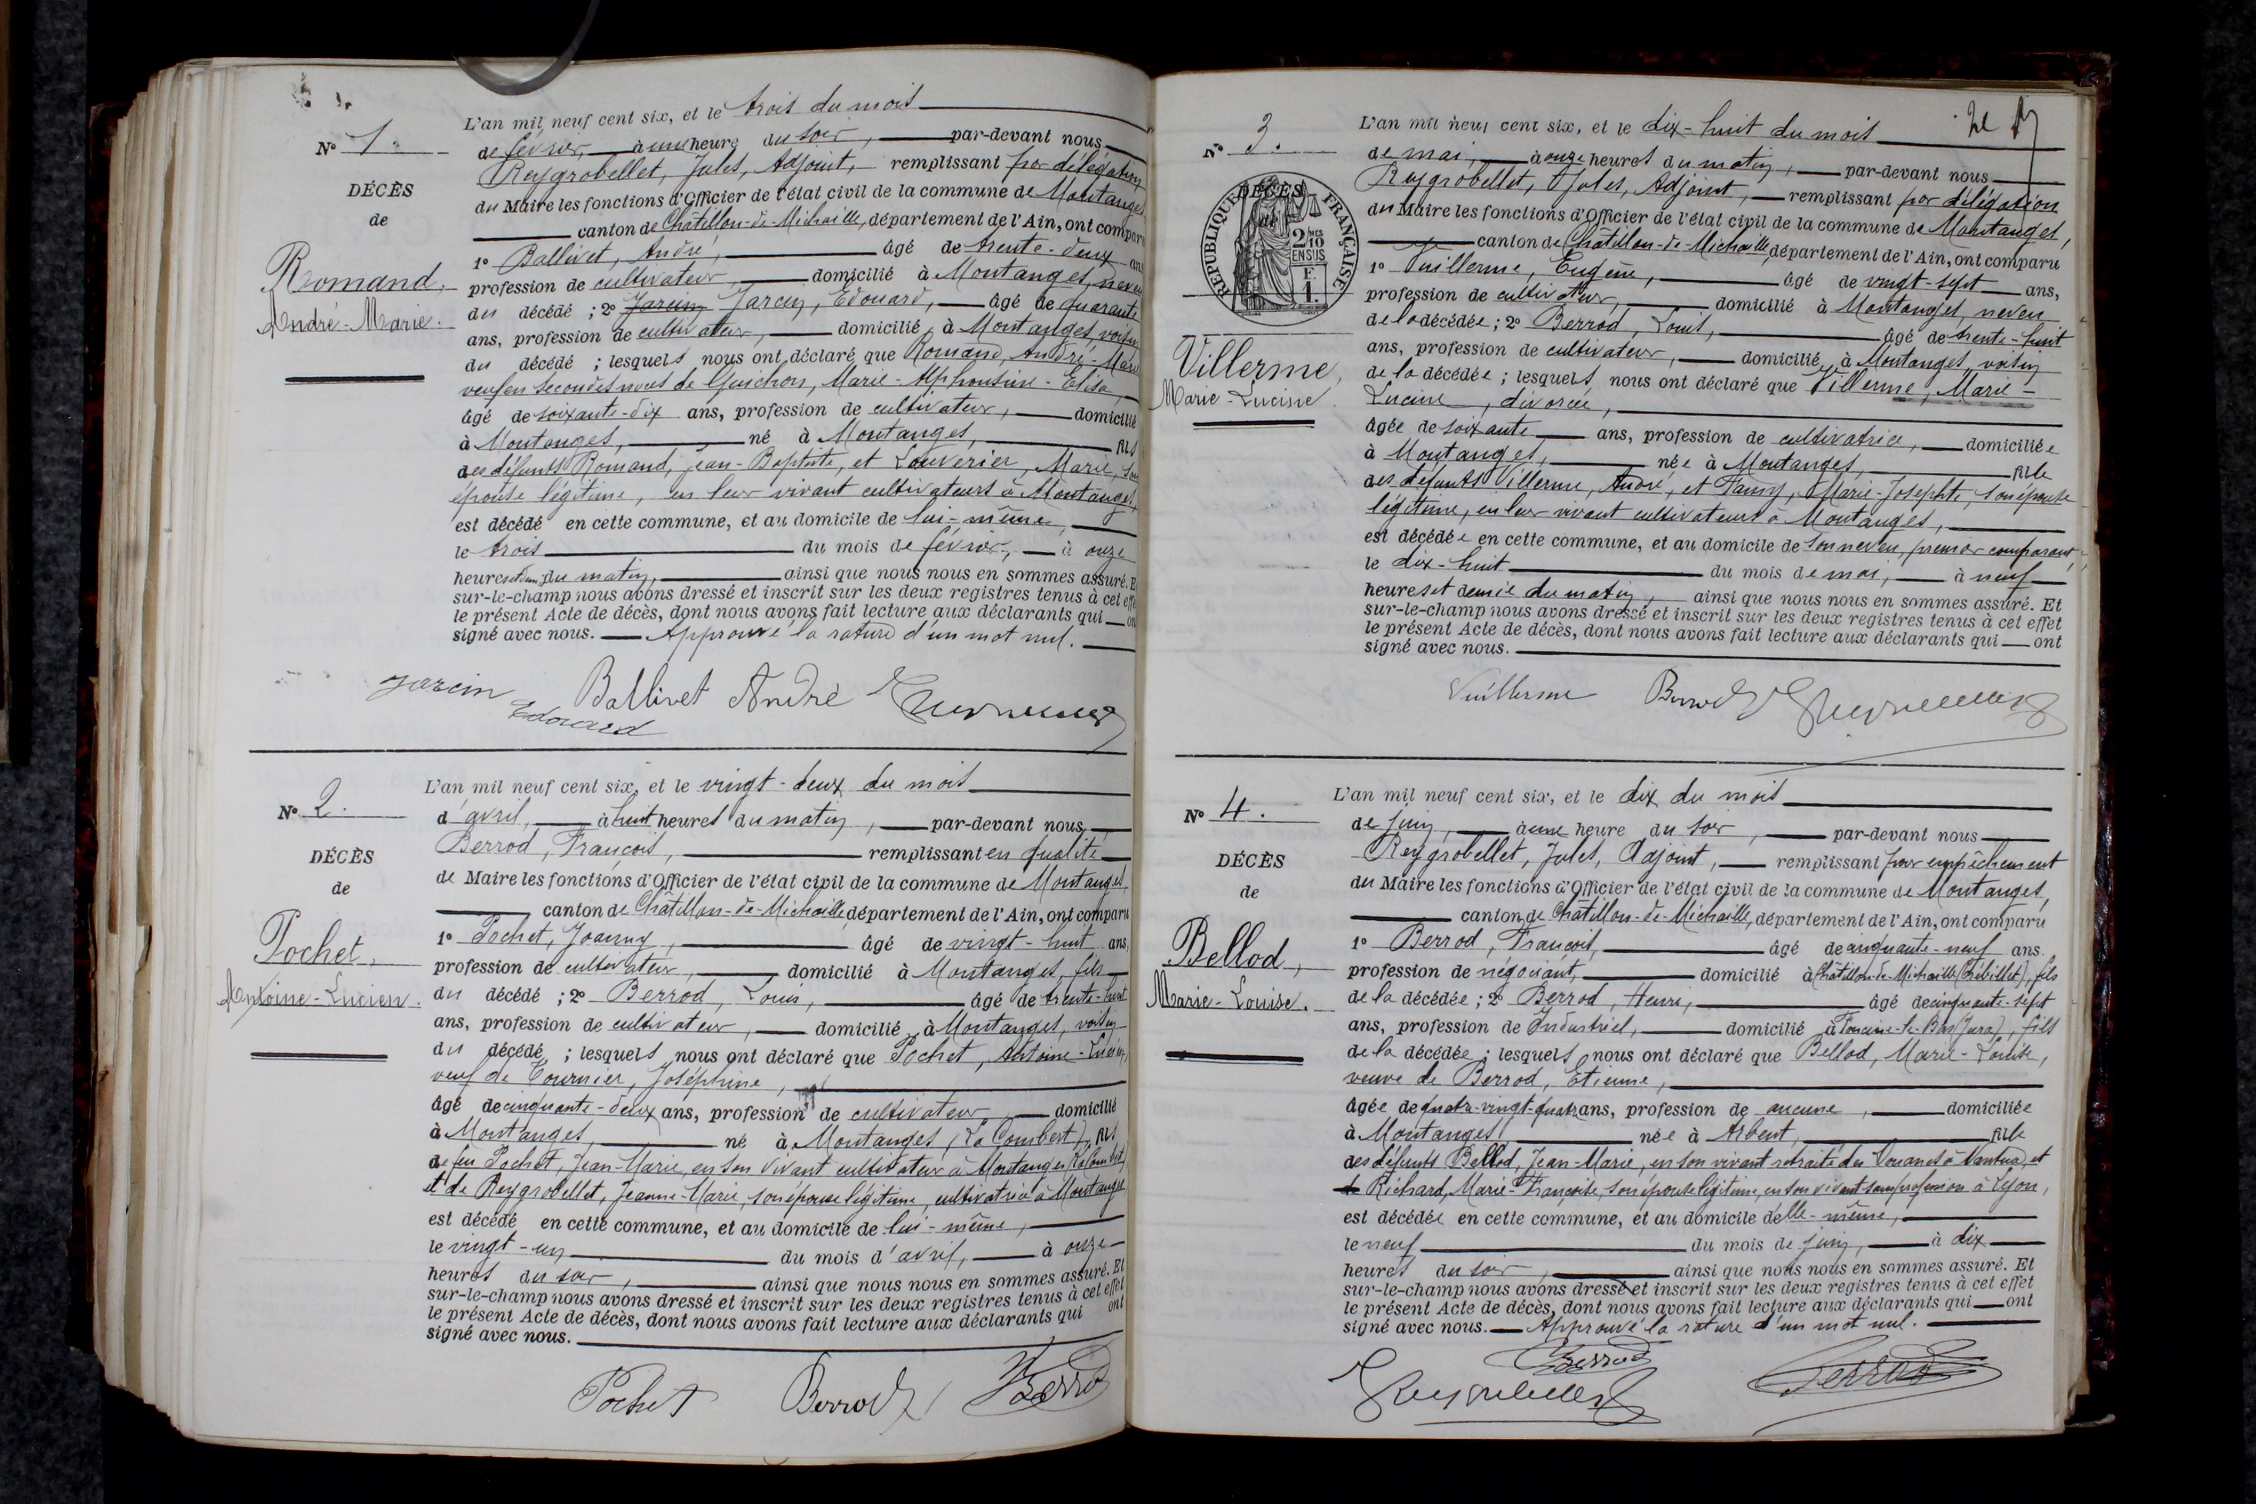 L'an mil neuf cent six, et le trois du mois
N° 1.
de février, à une heure du soir, par-devant nous
Reygrobellet, Jules, Adjoint, remplissant par délégation
DÉCÈS
du Maire les fonctions d'Officier de l'état civil de la commune de Montanges,
de
canton de Châtillon-de-Michaille, département de l'Ain, ont comparu
1° Ballivet, André, âgé de trente-deux ans
Romand,
profession de cultivateur, domicilié à Montanges, neveu
du décédé ; 2° Jarcin Jarcin, Edouard, âgé de quarante
André-Marie.
ans, profession de cultivateur, domicilié à Montanges, voisin
du décédé ; lesquels nous ont déclaré que Romand, André-Marie
veuf en secondes noces de Guichon, Marie-Alphonsine-Elisa,
âgé de soixante-dix ans, profession de cultivateur, domicilié
à Montanges, né à Montanges, fils
des défunts Romand, Jean-Baptiste, et Louverier, Marie, son
épouse légitime, en leur vivant cultivateurs à Montanges,
est décédé en cette commune, et au domicile de lui-même,
le trois du mois de février, à onze
heures du matin, ainsi que nous nous en sommes assuré. Et
sur-le-champ nous avons dressé et inscrit sur les deux registres tenus à cet effet
le présent Acte de décès, dont nous avons fait lecture aux déclarants qui ont
signé avec nous. Approuvé la rature d'un mot nul.
Jarcin Edouard Ballivet André
L'an mil neuf cent six, et le vingt-deux du mois
N° 2.
d'avril, à huit heures du matin, par-devant nous
Berrod, François, remplissant en qualité
DÉCÈS
de Maire les fonctions d'Officier de l'état civil de la commune de Montanges
de
canton de Châtillon-de-Michaille, département de l'Ain, ont comparu
Pochet,
1° Pochet, Joanny, âgé de vingt-huit ans,
profession de cultivateur, domicilié à Montanges, fils
Antoine-Lucien.
du décédé ; 2° Berrod, Louis, âgé de trente-huit
ans, profession de cultivateur, domicilié à Montanges, voisin
du décédé ; lesquels nous ont déclaré que Pochet, Antoine-Lucien,
veuf de Tournier, Joséphine,
âgé de cinquante-deux ans, profession de cultivateur, domicilié
à Montanges, né à Montanges (La Combert), fils
de feu Pochet, Jean-Marie, en son vivant cultivateur à Montanges (La Combert)
et de Reygrobellet, Jeanne-Marie, son épouse légitime, cultivatrice à Montanges
est décédé en cette commune, et au domicile de lui-même,
le vingt-un du mois d'avril, à onze
heures du soir, ainsi que nous nous en sommes assuré. Et
sur-le-champ nous avons dressé et inscrit sur les deux registres tenus à cet effet
le présent Acte de décès, dont nous avons fait lecture aux déclarants qui ont
signé avec nous.
Pochet Berrod Berrod
L'an mil neuf cent six, et le dix-huit du mois
N° 3.
de mai, à onze heures du matin, par-devant nous
Reygrobellet, Jules, Adjoint, remplissant par délégation
DÉCÈS
RÉPUBLIQUE FRANÇAISE
2 mes
10
EN SUS
F.
1.
du Maire les fonctions d'Officier de l'état civil de la commune de Montanges,
canton de Châtillon-de-Michaille, département de l'Ain, ont comparu
1° Vuillerme, Eugène, âgé de vingt-sept ans,
profession de cultivateur, domicilié à Montanges, neveu
de la décédée ; 2° Berrod, Louis, âgé de trente-huit
Villerme,
ans, profession de cultivateur, domicilié à Montanges, voisin
de la décédée ; lesquels nous ont déclaré que Villerme, Marie-
Marie-Lucine.
Lucine, divorcée,
âgée de soixante ans, profession de cultivatrice, domiciliée
à Montanges, née à Montanges, fille
des défunts Villerme, André, et Tamy, Marie-Josephte, son épouse
légitime, en leur vivant cultivateurs à Montanges,
est décédée en cette commune, et au domicile de son neveu, premier comparant,
le dix-huit du mois de mai, à neuf
heures et demie du matin, ainsi que nous nous en sommes assuré. Et
sur-le-champ nous avons dressé et inscrit sur les deux registres tenus à cet effet
le présent Acte de décès, dont nous avons fait lecture aux déclarants qui ont
signé avec nous.
Vuillerme Berrod
L'an mil neuf cent six, et le dix du mois
N° 4.
de juin, à une heure du soir, par-devant nous
Reygrobellet, Jules, Adjoint, remplissant pour empêchement
DÉCÈS
du Maire les fonctions d'Officier de l'état civil de la commune de Montanges,
de
canton de Châtillon-de-Michaille, département de l'Ain, ont comparu
Bellod,
1° Berrod, François, âgé de cinquante-neuf ans
profession de négociant, domicilié à Châtillon-de-Michaille, fils
Marie-Louise.
de la décédée ; 2° Berrod, Henri, âgé de cinquante-sept
ans, profession de Industriel, domicilié à Foncine-le-Bas (Jura), fils
de la décédée ; lesquels nous ont déclaré que Bellod, Marie-Louise,
veuve de Berrod, Etienne,
âgée de quatre-vingt-quatre ans, profession de aucune, domiciliée
à Montanges, née à Arbent, fille
des défunts Bellod, Jean-Marie, en son vivant retraité des Douanes à Nantua, et
Richard, Marie-Françoise, son épouse légitime, en son vivant sans profession à Lyon,
est décédée en cette commune, et au domicile d'elle-même,
le neuf du mois de juin, à dix
heures du soir, ainsi que nous nous en sommes assuré. Et
sur-le-champ nous avons dressé et inscrit sur les deux registres tenus à cet effet
le présent Acte de décès, dont nous avons fait lecture aux déclarants qui ont
signé avec nous. Approuvé la rature d'un mot nul.
Berrod Berrod